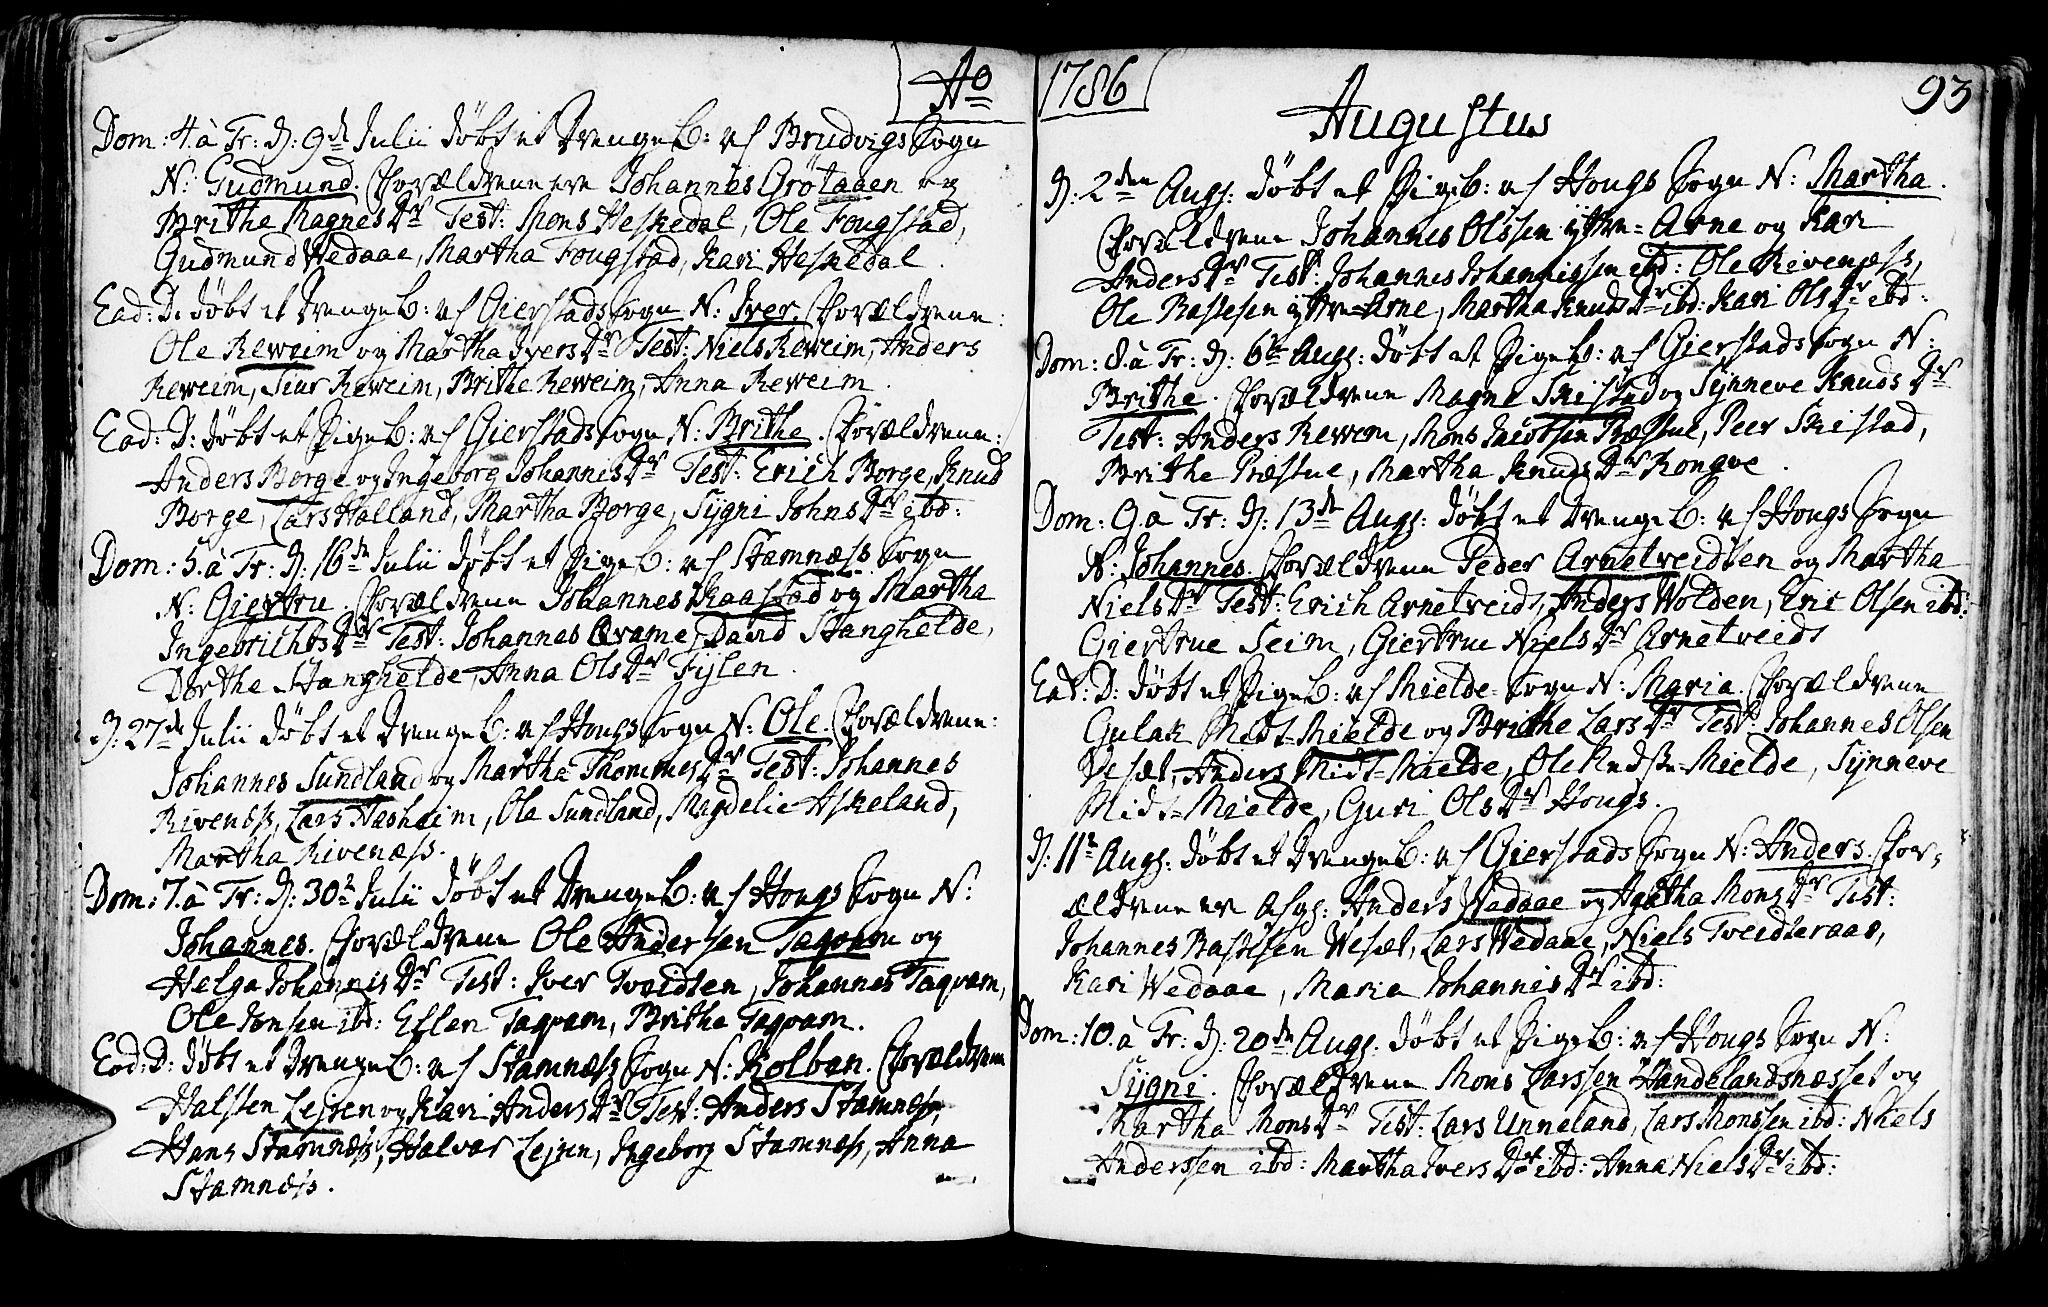 Ao
Dom: 4. à Tr: D: 9de Julii döbt et Drengeb: af Brudvigs Sogn
N: Gudmund. Forældrene ere Johannes Grötaaen og
Brithe Magnes Dr Test: Mons Heskedal, Ole Fougstad,
Gudmund Wedaae, Martha Fougstad, Kari Heskedal.
Ead: D: döbt et Drengeb: af Gierstads Sogn N: Iver. Forældrene:
Ole Reweim og Martha Ivers Dr Test: Niels Reweim, Anders
Reweim, Siur Reweim, Brithe Reweim, Anna Reweim.
Ead: D: döbt et Pigeb: af Gierstads Sogn N: Brithe. Forældrene:
Anders Borge og Ingeborg Johannis Dr Test: Erich Borge, Knud
Borge, Lars Halland, Martha Borge, Sygni Johns Dr ibd:
Dom: 5. à Tr: D: 16de Julii döbt et Pigeb: af Stamnæss Sogn
N: Giertru. Forældrene Johannes Kaastad og Martha
Ingebrichts Dr Test: Johannes Qvame, David Stanghelde,
Dorthe Stanghelde, Anna Ols Dr Fylen.
D: 27de Julii döbt et Drengeb: af Hougs Sogn N: Ole. Forældrene:
Johannes Sundland og Martha Thommes Dr Test: Johannes
Rivenæss, Lars Hasheim, Ole Sundland, Magdelie Askeland,
Martha Rivenæss.
Dom: 7. à Tr: D: 30te Julii döbt et Drengeb: af Hougs Sogn N:
Johannes. Forældrene Ole Andersen Taqvam og
Helga Johannis Dr Test: Iver Tveidten, Johannes Taqvam,
Ole Jonsen ibd: Ellen Taqvam, Brithe Taqvam.
Eod: D: döbt et Drengeb: af Stamnæss Sogn N: Kolben. Forældrene
Halsten Lejren og Kari Anders Dr Test: Anders Stamnæss,
Hans Stamnæss, Halvor Lejren, Ingeborg Stamnæss, Anna
Stamnæss.
1786
93
Augustus
D: 2den Aug: döbt et Pigeb: af Hougs Sogn N: Martha.
Forældrene Johannes Olssen yttre-Arne og Kari
Anders Dr Test: Johannes Johannissen ibd: Ole Rivenæss,
Ole Rastesen yttre-Arne, Martha Knuds Dr ibd: Kari Ols Dr ibd:
Dom: 8. à Tr: D: 6te Aug: döbt et Pigeb: af Gierstads Sogn N:
Brithe. Forældrene Magne Skistad og Synneve Knuds Dr
Test: Anders Reweim, Mons Jacobsen Præstue, Peer Skistad,
Brithe Præstue, Martha Knuds Dr Rongve.
Dom: 9. à Tr: D: 13de Aug: döbt et Drengeb: af Hougs Sogn
N: Johannes. Forældrene Peder Arnetveidten og Martha
Niels Dr Test: Erich Arnetveidt, Anders Wolden, Eric Olsen ibd:
Giertrue Seim, Giertrue Niels Dr Arnetveidt
Ead: D: döbt et Pigeb: af Mielde-Sogn N: Maria. Forældrene
Gulak Midt-Mielde og Brithe Lars Dr Test: Johannes Olsen
Vesæt, Anders Midt-Mielde, Ole Nedste-Mielde, Synneve
Midt-Mielde, Guri Ols Dr Hougs.
D: 11te Aug: döbt et Drengeb: af Gierstads Sogn N: Anders. For-
ældrene ere Anders Wadaae og Agatha Mons Dr Test:
Johannes Rastesen Wesæt, Lars Wedaae, Niels Tveidteraas,
Kari Wedaae, Maria Johannis Dr ibd:
Dom: 10. à Tr: D: 20de Aug: döbt et Pigeb: af Hougs Sogn N:
Sygni. Forældrene Mons Larssen Handelandsnæsset og
Martha Mons Dr Test: Lars Unneland, Lars Monssen ibd: Niels
Anderssen ibd: Martha Ivers Dr ibd: Anna Niels Dr ibd: